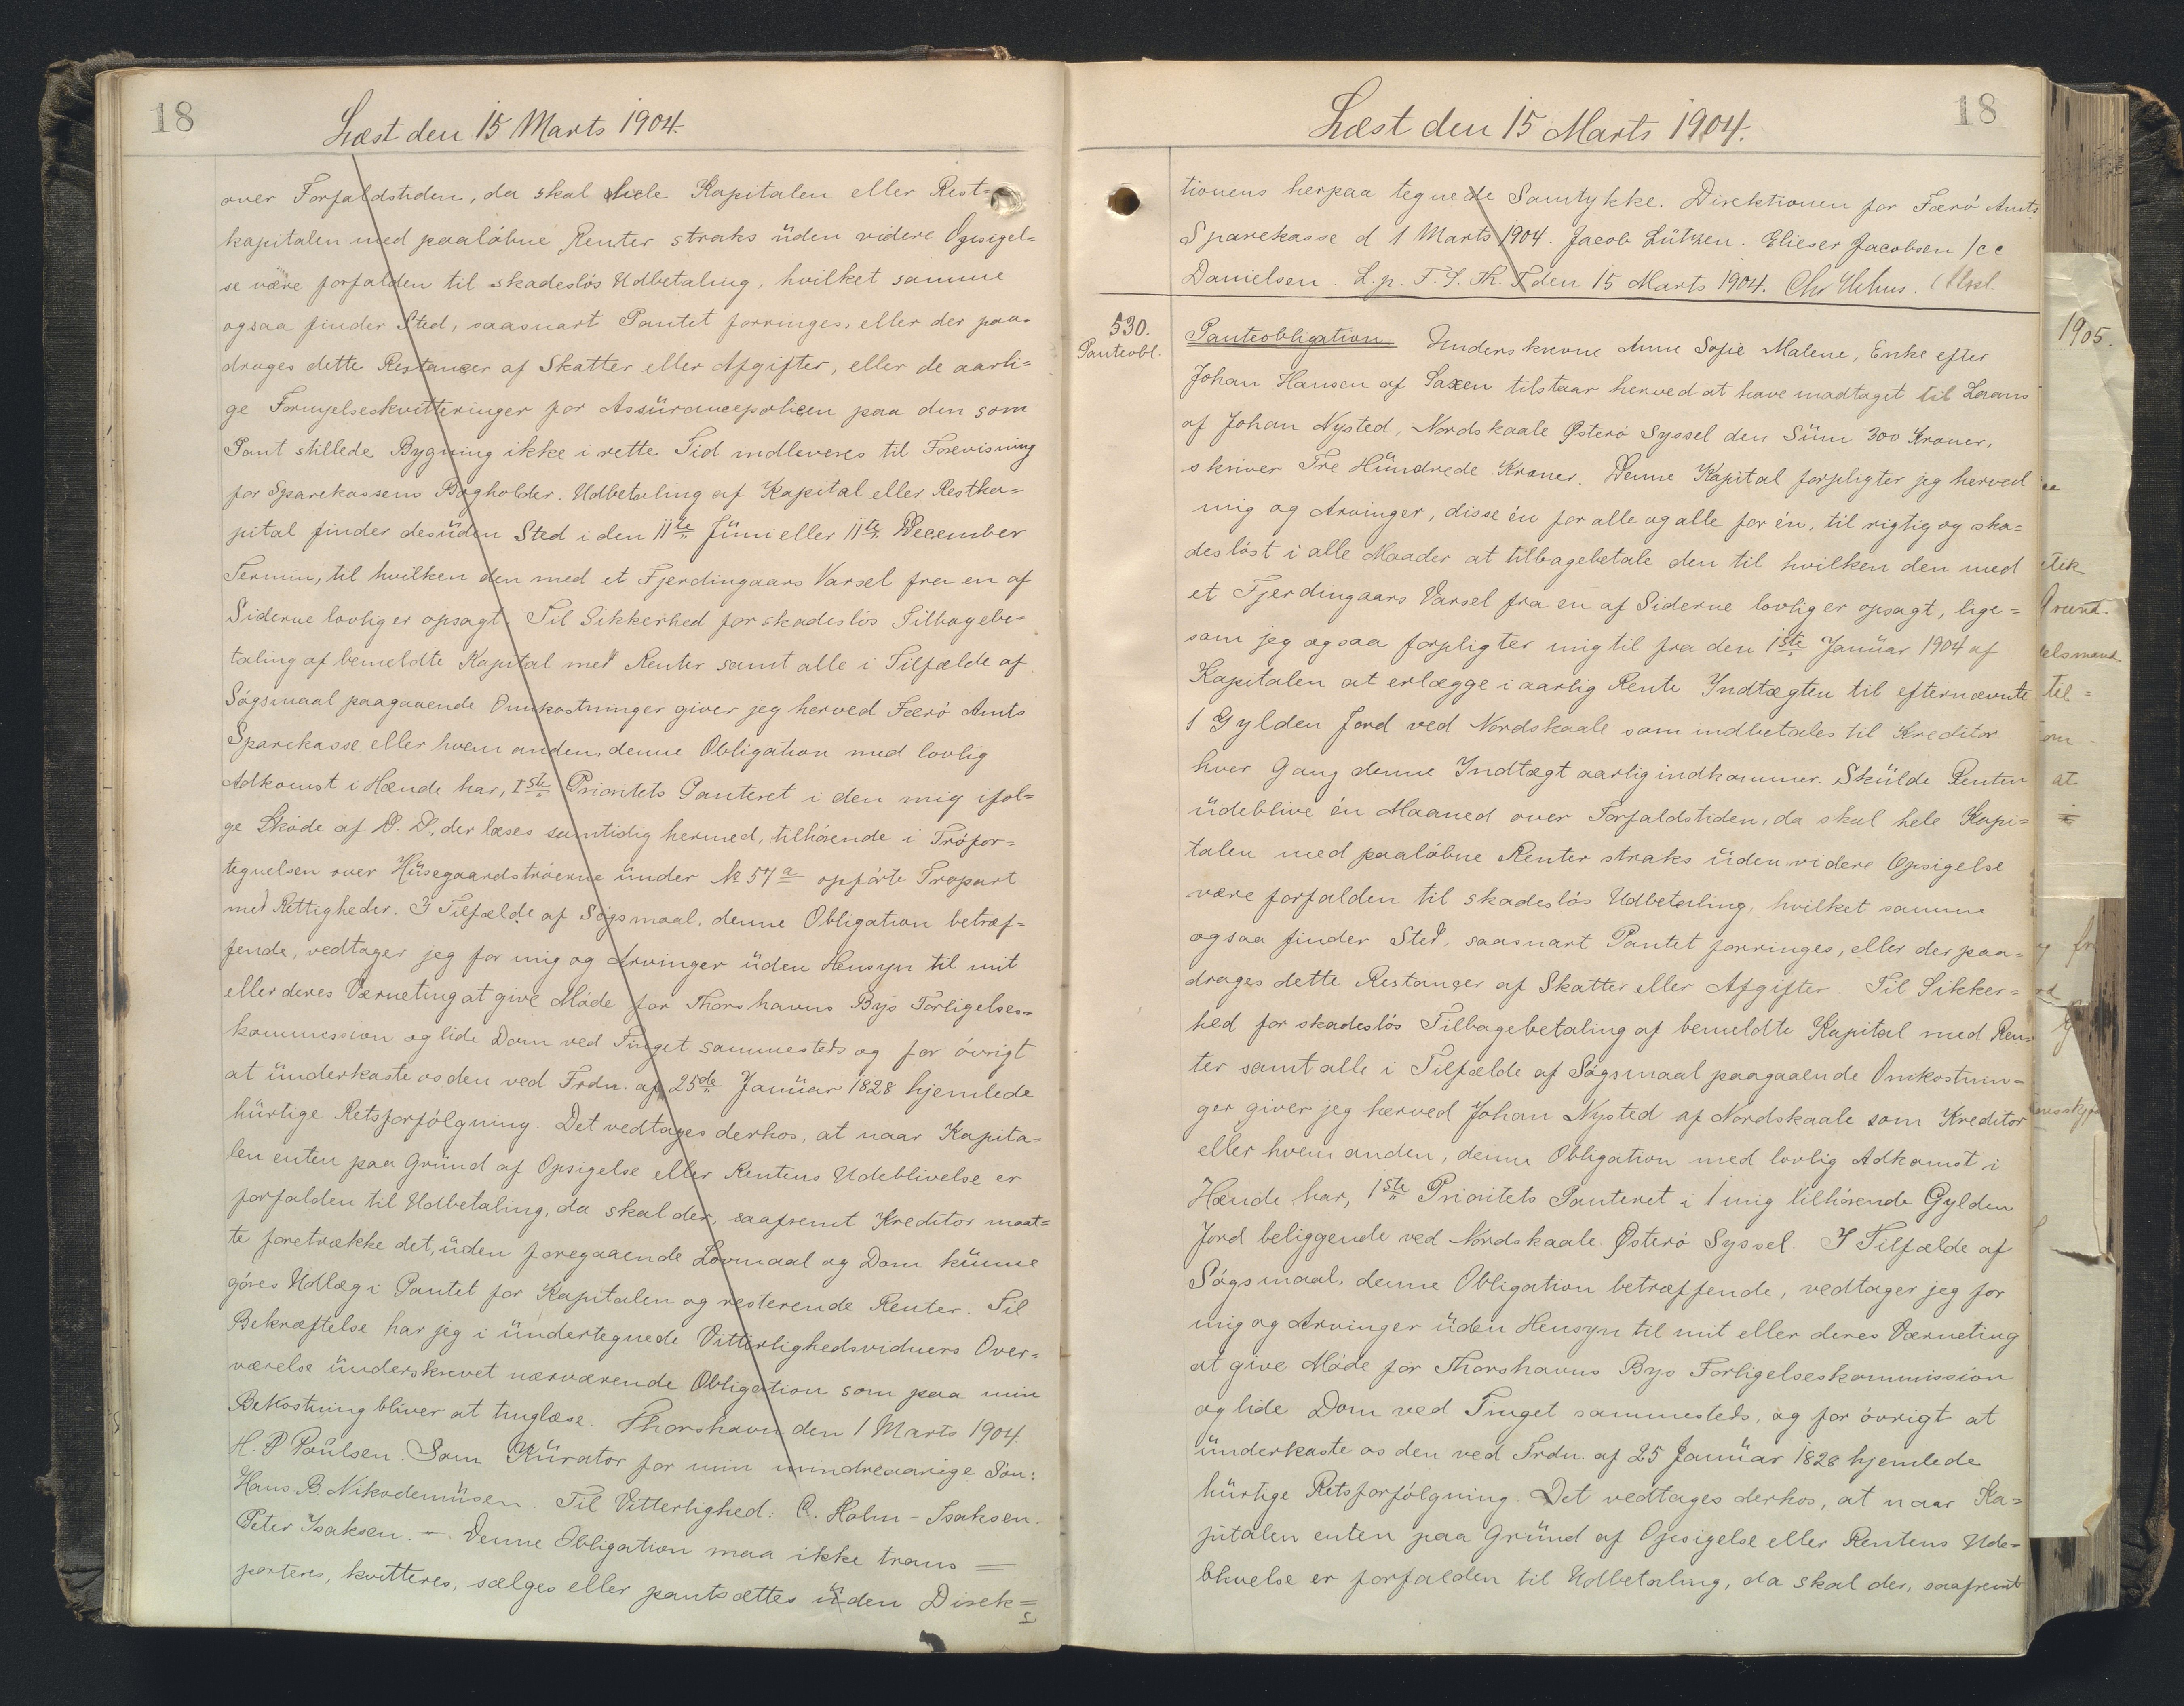 18
Læst den 15 Marts 1904.
over Forfaldstiden, da skal hele Kapitalen eller Rest-
kapitalen med paaløbne Renter straks uden videre Opsigel=
se være forfalden til skadesløs Udbetaling, hvilket samme
ogsaa finder Sted, saasnart Pantet forringes, eller der paa-
drages dette Restancer af Skatter eller Afgifter, eller de aarli=
ge Fornyelseskvitteringer for Assurancepolicen paa den som
Pant stillede Bygning ikke i rette Tid indleveres til Forevisning
for Sparekassens Bogholder. Udbetaling af Kapital eller Restka=
pital finder desuden Sted i den 11te Juni eller 11te December
Termin, til hvilken den med et Fjerdingaars Varsel fra en af
Siderne lovlig er opsagt. Til Sikkerhed for skadesløs Tilbagebe-
taling af bemeldte Kapital med Renter samt alle i Tilfælde af
Søgsmaal paagaaende Omkostninger giver jeg herved Færø Amts
Sparekasse eller hvem anden, denne Obligation med lovlig
Adkomst i Hænde har, 1ste Prioritets Panteret i den mig iføl=
ge Skøde af D. D., der læses samtidig hermed, tilhørende i Trøfor=
tegnelsen over Husegaardstrøerne under № 57a opførte Trøpart
med Rettigheder. I Tilfælde af Søgsmaal, denne Obligation betræf-
fende, vedtager jeg for mig og Arvinger uden Hensyn til mit
eller deres Værneting at give Møde for Thorshavns Bys Forligelses=
kommission og lide Dom ved Tinget sammesteds og for øvrigt
at underkaste os den ved Frdn. af 25de Januar 1828 hjemlede
hurtige Retsforfølgning. Det vedtages derhos, at naar Kapita=
len enten paa Grund af Opsigelse eller Rentens Udeblivelse er
forfalden til Udbetaling, da skal der, saafremt Kreditor maat=
te foretrække det, uden foregaaende Lovmaal og Dom kunne
gøres Udlæg i Pantet for Kapitalen og resterende Renter. Til
Bekræftelse har jeg i undertegnede Vitterlighedsvidners Over=
værelse underskrevet nærværende Obligation som paa min
Bekostning bliver at tinglæse. Thorshavn den 1 Marts 1904.
H. P Poulsen. Som Kurator for min mindreaarige Søn:
Hans B. Nikodemusen. Til Vitterlighed: C. Holm - Isaksen.
Peter Isaksen. — Denne Obligation maa ikke trans =
porteres, kvitteres, sælges eller pantsættes uden Direk=
18
Læst den 15 Marts 1904.
tionens herpaa tegnede Samtykke. Direktionen for Færø Amts
Sparekasse d 1 Marts 1904. Jacob Lützen. Elieser Jacobsen /cc
Danielsen. L. p. T. S. Th. T den 15 Marts 1904.
530.
Panteobl.
Panteobligation Underskrevne Anne Sofie Malene, Enke efter
Johan Hansen af Saxen tilstaar herved at have modtaget til Laans
af Johan Nysted, Nordskaale Østerø Syssel den Sum 300 Kroner,
skriver Tre Hundrede Kroner. Denne Kapital forpligter jeg herved
mig og Arvinger, disse én for alle og alle for én, til rigtig og ska=
desløst i alle Maader at tilbagebetale den til hvilken den med
et Fjerdingaars Varsel fra en af Siderne lovlig er opsagt, lige=
som jeg ogsaa forpligter mig til fra den 1ste Januar 1904 af
Kapitalen at erlægge i aarlig Rente Indtægten til efternævnte
1 Gylden Jord ved Nordskaale som indbetales til Kreditor
hver Gang denne Indtægt aarlig indkommer. Skulde Renten
udeblive én Maaned over Forfaldstiden, da skal hele Kapi=
talen med paaløbne Renter straks uden videre Opsigelse
være forfalden til skadesløs Udbetaling, hvilket samme
ogsaa finder Sted, saasnart Pantet forringes, eller der paa=
drages dette Restancer af Skatter eller Afgifter. Til Sikker=
hed for skadesløs Tilbagebetaling af bemeldte Kapital med Ren=
ter samt alle i Tilfælde af Søgsmaal paagaaende Omkostnin=
ger giver jeg herved Johan Nysted af Nordskaale som Kreditor
eller hvem anden, denne Obligation med lovlig Adkomst i
Hænde har, 1ste Prioritets Panteret i 1 mig tilhørende Gylden
Jord beliggende ved Nordskaale Østerø Syssel. I Tilfælde af
Søgsmaal, denne Obligation betræffende, vedtager jeg for
mig og Arvinger uden Hensyn til mit eller deres Værneting
at give Møde for Thorshavns Bys Forligelseskommission
og lide Dom ved Tinget sammesteds, og for øvrigt at
underkaste os den ved Frdn. af 25 Januar 1828 hjemlede
hurtige Retsforfølgning. Det vedtages derhos, at naar Ka=
pitalen enten paa Grund af Opsigelse eller Rentens Ude-
blivelse er forfalden til Udbetaling, da skal der, saafremt
1905.